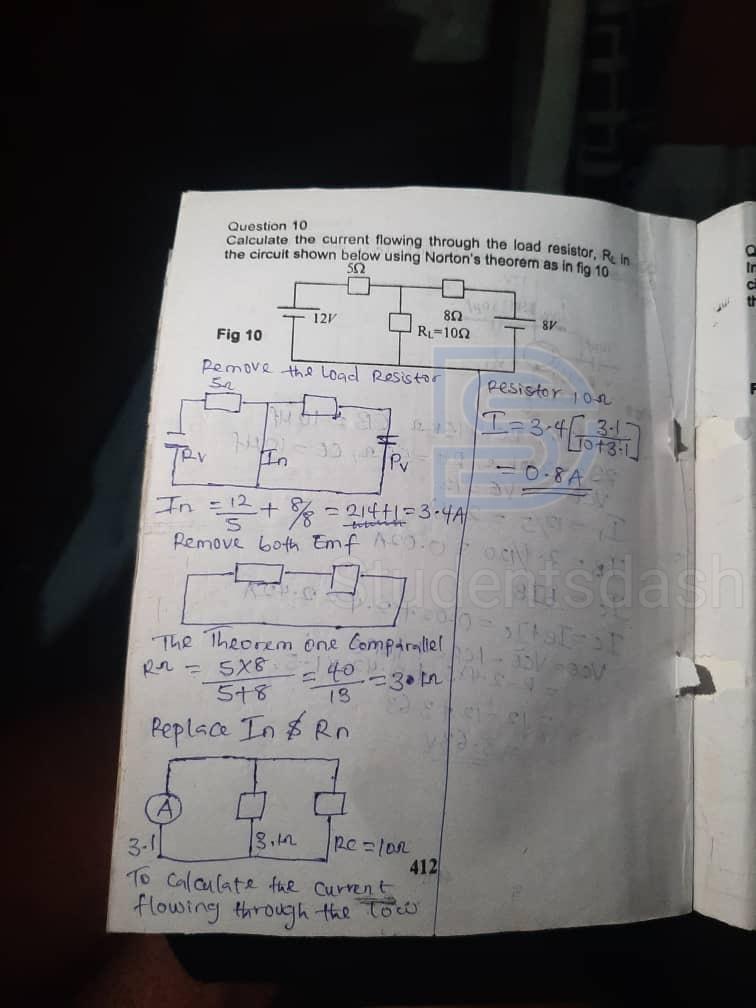 Question 10
Calculate the current flowing through the load resistor, RL in
the circuit shown below using Norton's theorem as in fig 10
5Ω
12V
8Ω
RL=10Ω
8V
Fig 10
Remove the Load Resistor
5Ω
RV
In
PV
In = 12/5 + 8/8 = 2.4+1 = 3.4A
Remove both Emf
The Theorem one Comparallel
Rn = 5X8/5+8 = 40/13 = 3.1Ω
Replace In $ Rn
A
3.1
3.1Ω
RC = 10Ω
To Calculate the Current
flowing through the
412
Resistor 10Ω
I = 3.4[3.1/10+3.1]
= 0.8A
studentsdash